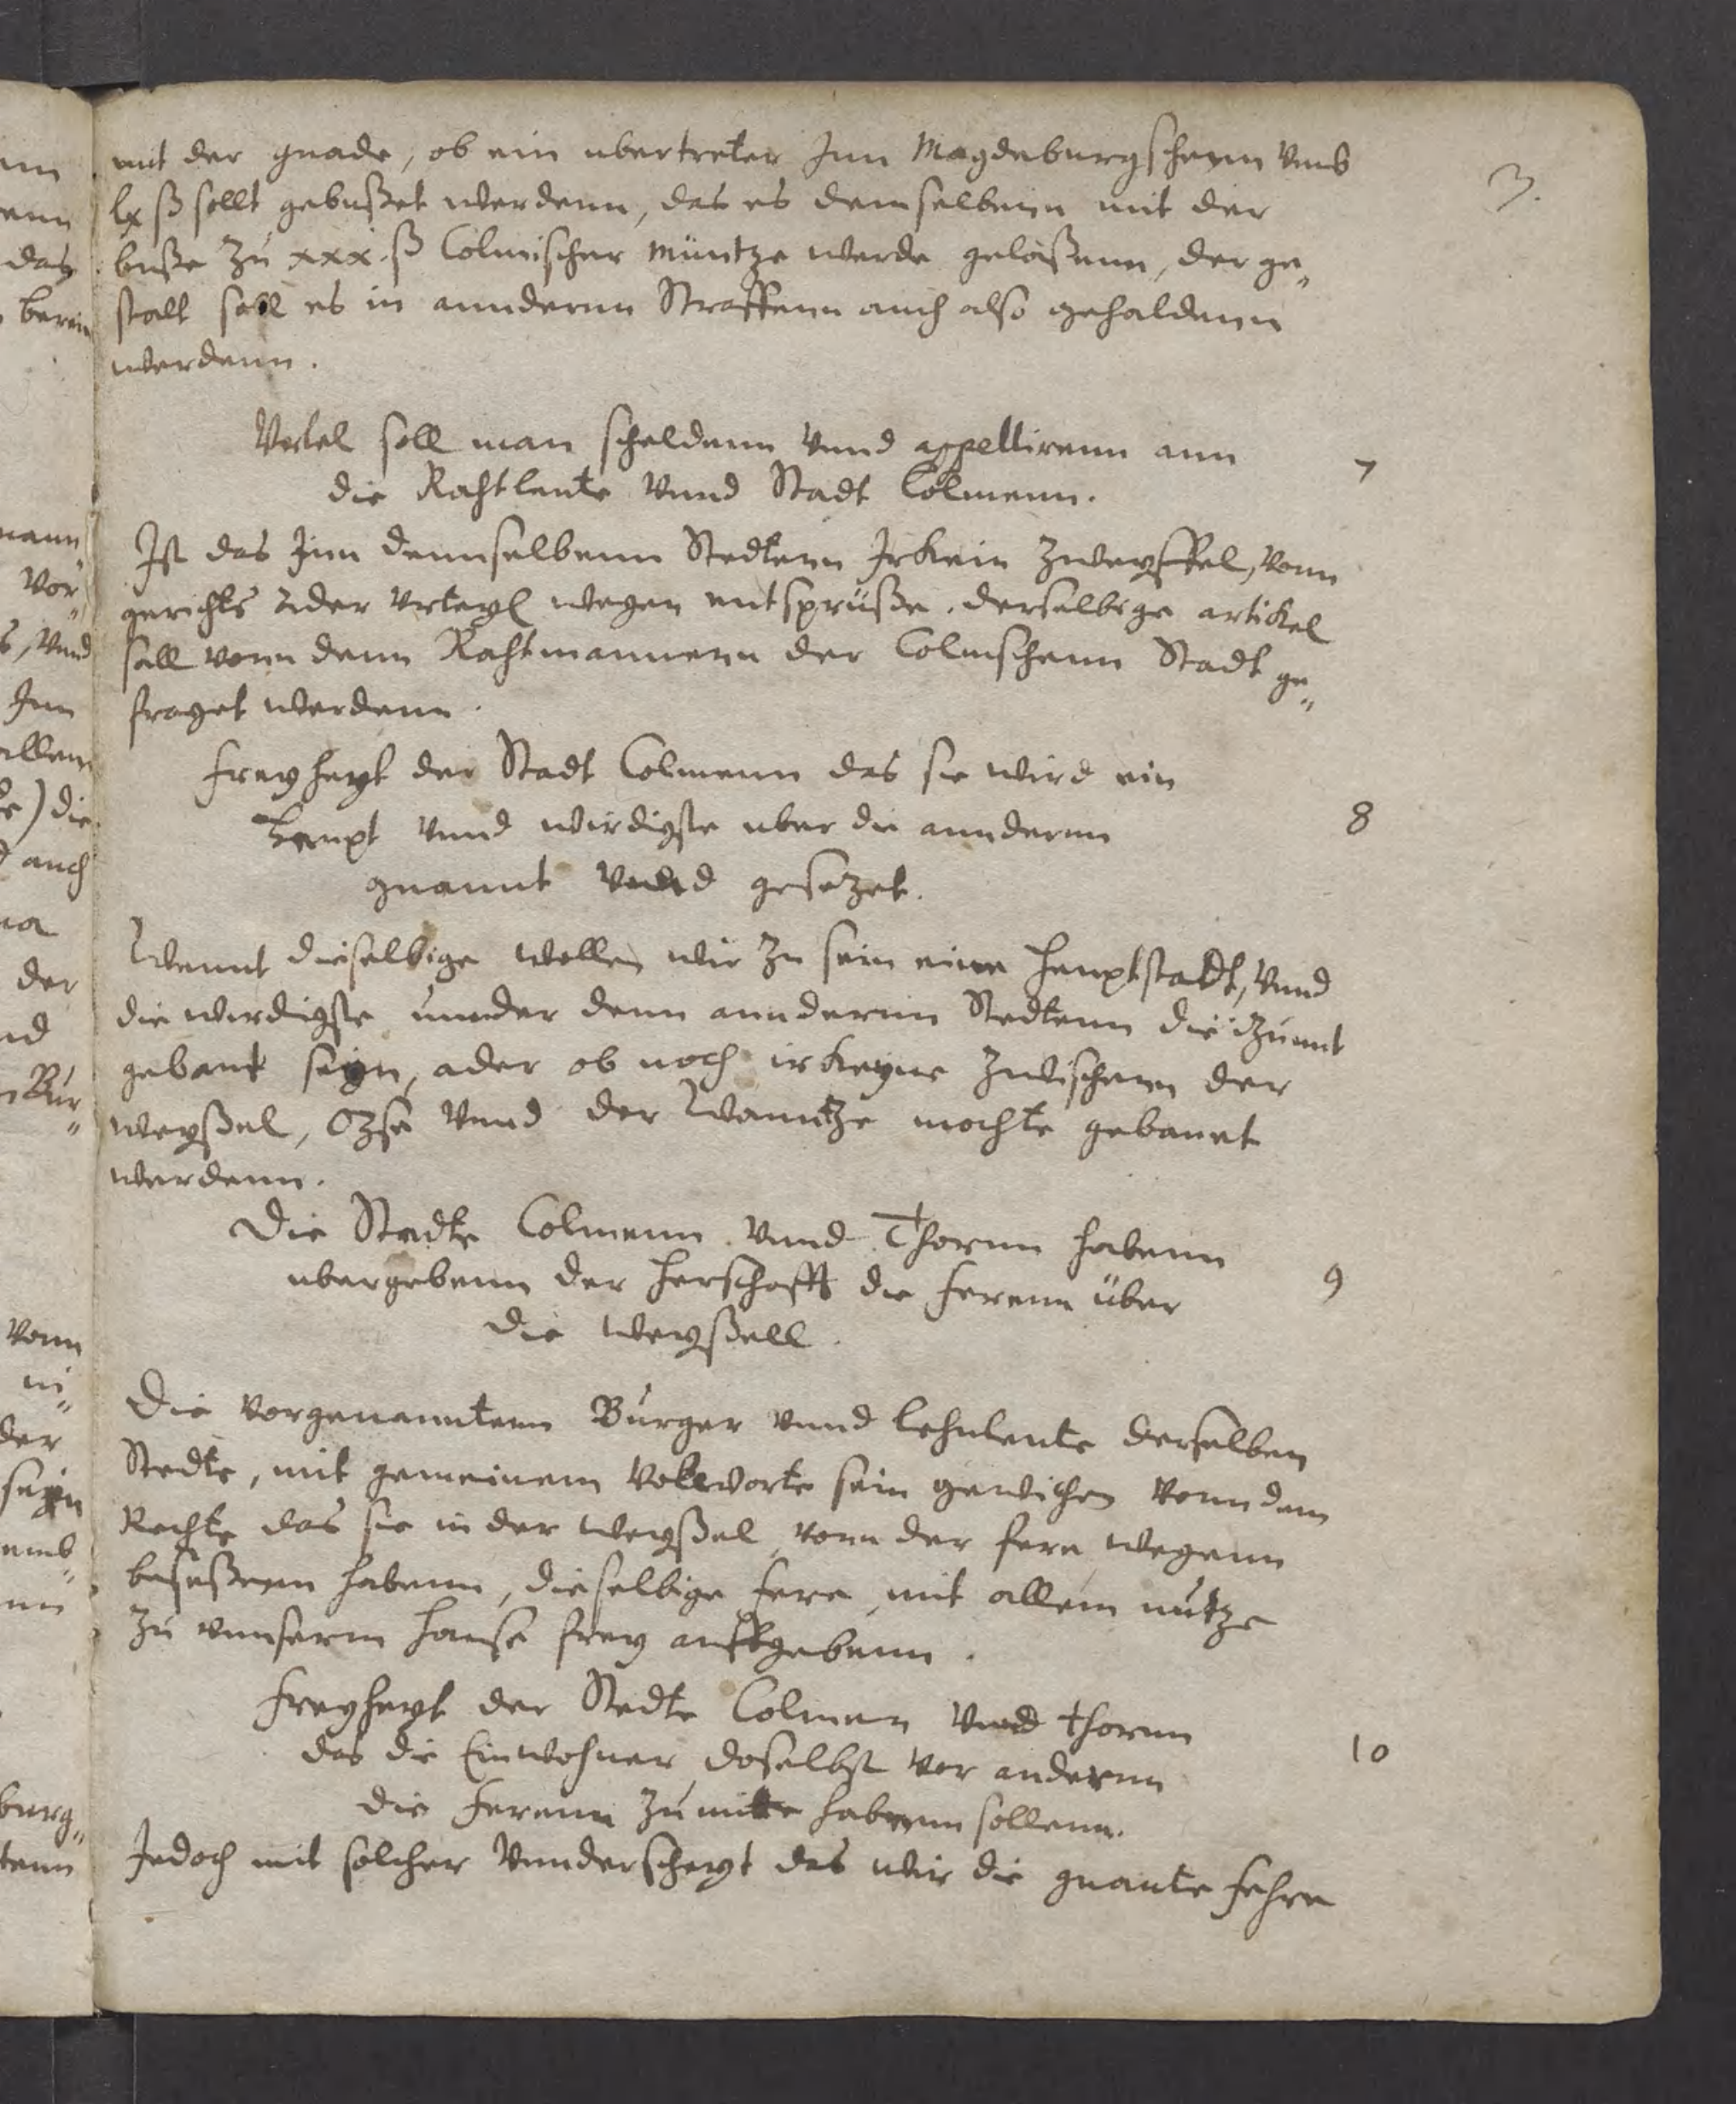 3.
mit der gnade, ob ein ubertreter Inn Magdeburgschenn umb
lx ß sollt gebußet werdenn, das es demselbenn mit der
buße zu xxx. ß Colmischer Müntze werde gelaßenn, der ge„
stalt soll es in anndernn Straffenn auch also gehaldenn
werdenn.
Urtel soll man scheldenn unnd appellirenn ann
die Rahtleute unnd Stadt Colmenn.
7
Ist das Inn dennselbenn Stedtenn Irkein Zweyffel, vonn
gerichts Ader Urteyl wegen entsprüße, derselbige artikel
sall vonn denn Rahtmannenn der Colmschenn Stadt ge„
fraget werdenn.
Freyheyt der Stadt Colmenn das sie wird ein
Heupt unnd wirdigste uber die anndernn
gnannt unnd gesezet.
8
Wennt dieselbige wollen wir zu sein eine Heuptstadt, unnd
die wirdigste unnder denn anndernn Stedtenn die izunnt
gebaut seyn, ader ob noch irkeyne zwischenn der
Weyßel, Ozse unnd der Dranntze mochte gebauet
werdenn.
Die Stedte Colmenn unnd Thornn habenn
ubergebenn der Herschafft die Ferenn über
die Weyßell.
9
Die vorgenanntenn Burger unnd Lehnleute derselben
Stedte, mit gemeinem vollworte sein gewichen vonn dem
Rechte das sie in der Weyßel, vonn der fere wegenn
beseßenn habenn, dieselbige fere, mit allem nutze
zu unnserm Hause frey auffgebenn.
Freyheyt der Stedte Colmen unnd Thornn
das die Einwohner doselbst vor andernn
die Ferenn zu mitte habenn sollenn.
10
Jedoch mit solcher unnderscheyt das wir die gnante Fehre